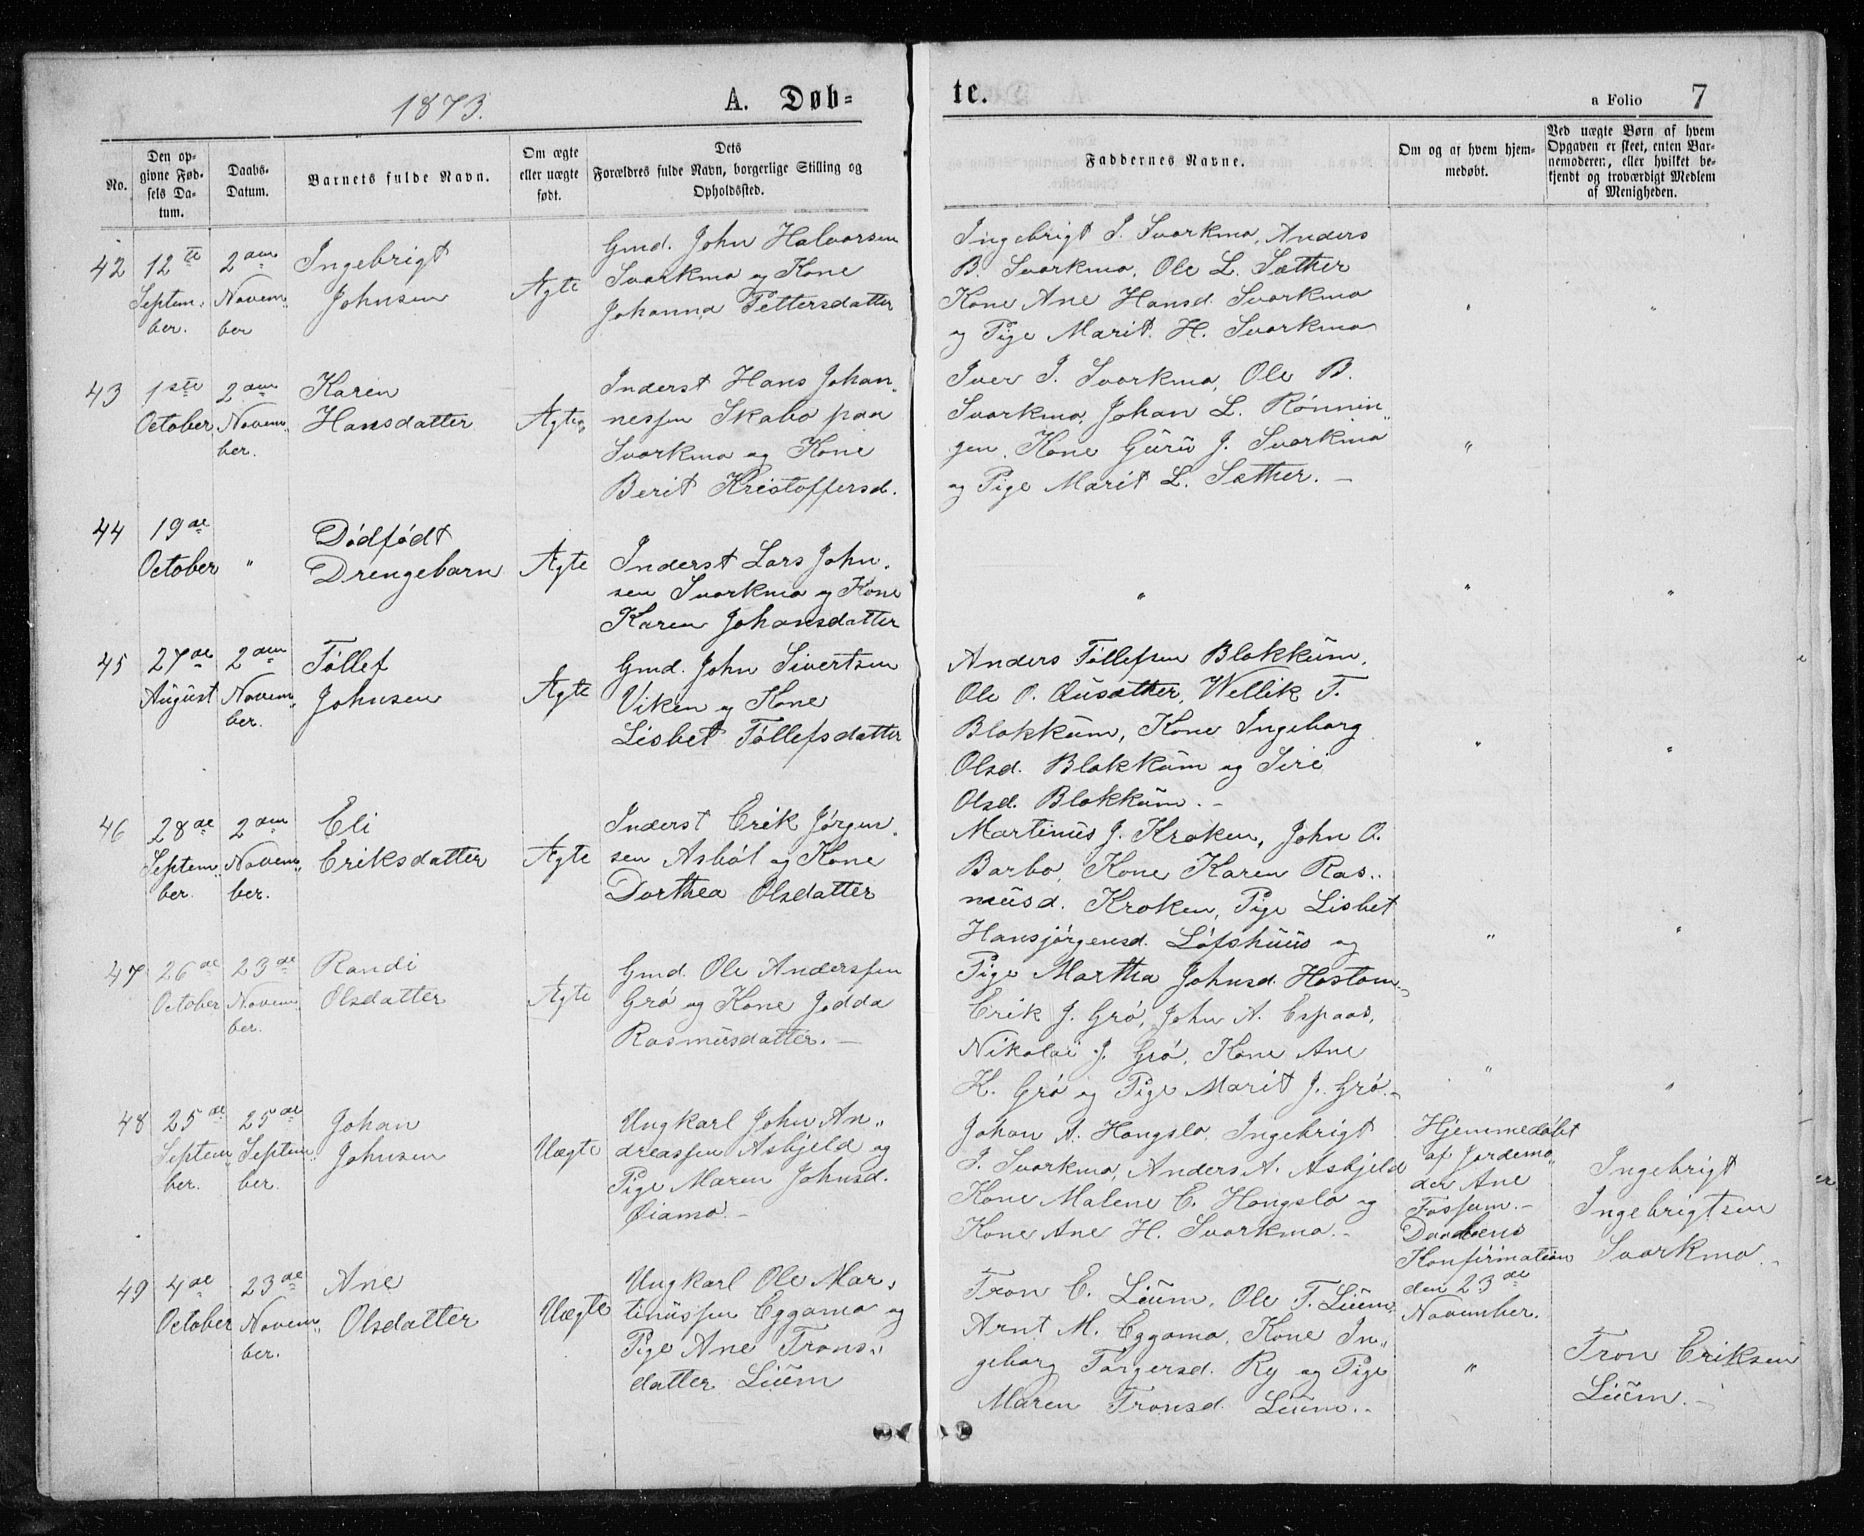 1873.
A. Døb=
te.
a Folio 7
No.
Den op-
givne Fød-
sels Da-
tum.
Daabs-
Datum.
Barnets fulde Navn.
Om ægte
eller uægte
født.
Dets
Forældres fulde Navn, borgerlige Stilling og
Opholdssted.
Faddernes Navne.
Om og af hvem hjem-
medøbt.
Ved uægte Børn af hvem
Opgaven er skeet, enten Bar-
nemoderen, eller hvilket be-
kjendt og troværdigt Medlem
af Menigheden.
42
12te
Septem-
ber.
2den
Novem-
ber
Ingebrigt
Johnsen
Ægte
Gmd. John Halvorsen
Svorkmo og Kone
Johanna Pettersdatter
Ingebrigt I. Svorkmo, Anders
B. Svorkmo, Ole L. Sæther
Kone Ane Hansd. Svorkmo
og Pige Marit H. Svorkmo
"
"
43
1ste
October
2den
Novem-
ber.
Karen
Hansdatter
Ægte
Inderst Hans Johan-
nessen Skabo paa
Svorkmo og Kone
Berit Kristoffersd.
Iver I. Svorkmo, Ole B.
Svorkmo, Johan L. Rønnin-
gen, Kone Guru J. Svorkmo
og Pige Marit L. Sæther. —
"
44
19de
October
"
Dødfødt
Drengebarn
Ægte
Inderst Lars John-
sen Svorkmo og Kone
Karen Johansdatter
"
"
"
45
27de
August
2den
Novem-
ber.
Tøllef
Johnsen
Ægte
Gmd. John Sivertsen
Viken og Kone
Lisbet Tøllefsdatter
Anders Tøllefsen Blokkum,
Ole O. Ousæther, Wellik T.
Blokkum, Kone Ingeborg
Olsd. Blokkum og Siri
Olsd. Blokkum. —
"
"
46
28de
Septem-
ber.
2den
Novem-
ber.
Eli
Eriksdatter
Ægte
Inderst Erik Jørgen-
sen Asbøl og Kone
Dorthea Olsdatter
Martinus J. Kroken, John O.
Barbo, Kone Karen Ras-
musd. Kroken, Pige Lisbet
Hansjørgensd. Løfshuus og
Pige Martha Johnsd. Hoston. —
"
"
47
26de
October
23de
Novem-
ber.
Randi
Olsdatter
Ægte
Gmd. Ole Anderssen
Grø og Kone Jødda
Rasmusdatter. —
Erik J. Grø, John A. Espaas,
Nikolai J. Grø, Kone Ane
K. Grø og Pige Marit J. Grø. —
"
"
48
25de
Septem-
ber.
25de
Septem-
ber.
Johan
Johnsen
Uægte
Ungkarl John An-
dreassen Asbjeld og
Pige Maren Johnsd.
Øiamo. —
Johan A. Hongslo, Ingebrigt
I. Svorkmo, Anders A. Asbjeld
Kone Malene E. Hongslo og
Kone Ane H. Svorkmo. —
Hjemmedøbt
af Jordemo-
der Ane
Fossum. —
Daabens
Konfirmation
den 23de
November.
Ingebrigt
Ingebrigtsen
Svorkmo. —
49
4de
October
23de
Novem-
ber.
Ane
Olsdatter
Uægte
Ungkarl Ole Mar-
tinussen Eggamo og
Pige Ane Trons-
datter Lium
Tron E. Lium, Ole T. Lium,
Arnt M. Eggamo, Kone In-
geborg Torgersd. Ry og Pige
Maren Tronsd. Lium. —
"
Tron Eriksen
Lium. —